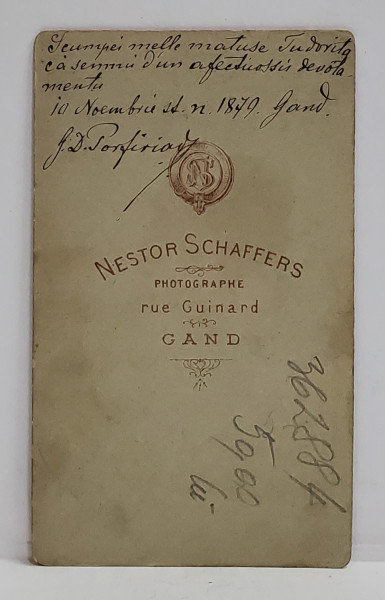 Scumpei melle matuse Tudorita
ca semnu d'un afectuossu devota-
mentu
10 Noembrie st. n. 1879. Gand.
G. D. Porfiriad
NS
NESTOR SCHAFFERS
PHOTOGRAPHE
rue Guinard
GAND
362884
5900
lei